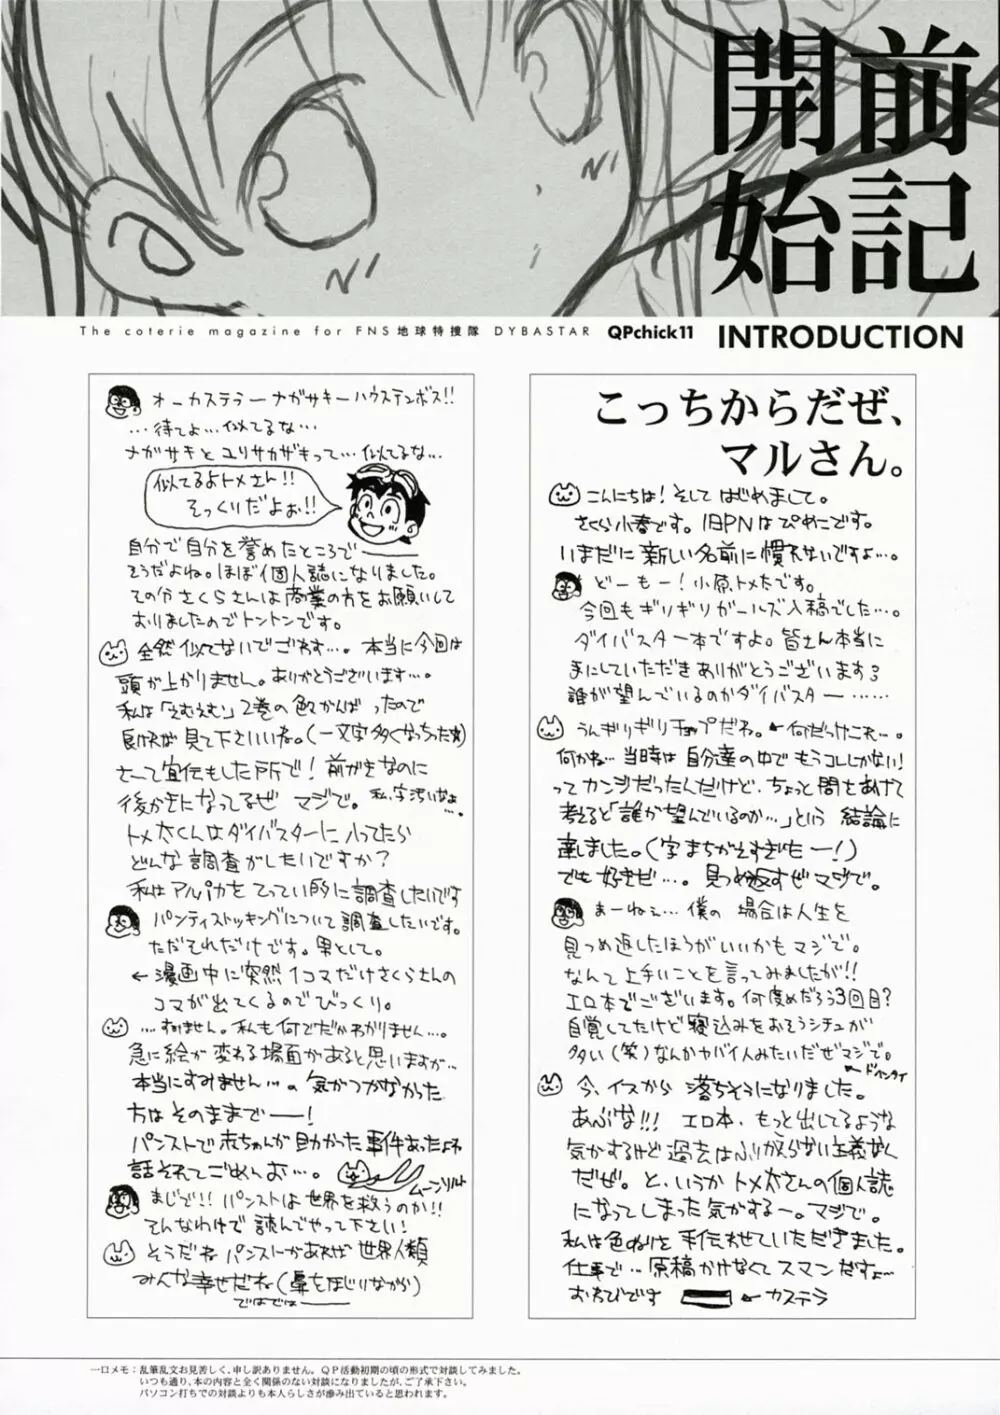 開始
前記
The coterie magazine for FNS地球特捜隊 DYBASTAR QPchick11 INTRODUCTION
こっちからだぜ、
マルさん。
こんにちは!そして はじめまして。
さくら小春です。旧PNはぴめこです。
いまだに新しい名前に慣れないですよ…。
どーもー!小原トメ太です。
今回もギリギリガールズ入稿でした…。
ダイバスター本ですよ。皆さん本当に
手にしていただきありがとうございます
誰が望んでいるのかダイバスター……
うんギリギリチョップだね。←何だっけこれ…。
何かね…当時は自分達の中でもうコレしかない!
ってカンジだったんだけど、ちょっと間をあけて
考えると「誰が望んでいるのか…」という 結論に
達しました。(字まちがえすぎたー!)
でも好きだ…。見つめ返すぜマジで。
まーねぇ…僕の 場合は人生を
見つめ返したほうがいいかもマジで。
なんて上手いことを言ってみましたが!!
エロ本でございます。何度めだろう3回目?
自覚してたけど寝込みをおそうシチュが
多い(笑)なんかヤバイ人みたいだぜマジで。
今、イスから 落ちそうになりました。
あぶな!!! エロ本、もっと出してるような
気がするけど過去はふりかえらない主義なく
だぜ。と、いうかトメ太さんの個人誌
になってしまった気がするー。マジで。
私は色ぬりを手伝わせていただきました。
仕事で…原稿かけなくてスマンだすょ…
おわびです ←カステラ
オーカステラーナガサキーハウステンボス!!
…待てよ…似てるな…
ナガサキとユリサカザキって…似てるな…
似てるよトメさん!!
そっくりだよぉ!!
自分で自分を誉めたところで――
そうだよね。ほぼ個人誌になりました。
その分さくらさんは商業の方をお願いして
おりましたのでトントンです。
全然似てないでござるす…。本当に今回は
頭が上がりません。ありがとうございます…。
私は「えむえむ」2巻の色がんばったので
良ければ見て下さいいね。(一文字多くなっちった☆)
さーて宣伝もした所で!前がきなのに
後がきになってるぜ マジで。私、字汚いなょ…。
トメ太くんはダイバスターに入ってたら
どんな調査がしたいですか?
私はアルパカをてってい的に調査したいです
パンティストッキングについて調査したいです。
ただそれだけです。男として。
←漫画中に突然1コマだけさくらさんの
コマが出てくるのでびっくり。
…すみません。私も何でだかわかりません…。
急に絵が変わる場面があると思いますが…
本当にすみません…。気がつかなかった
方はそのままでー!
パンストで赤ちゃんが助かった事件あったよね
話それてごめんお…。
まじで!!パンストは世界を救うのか!!
そんなわけで 読んでやって下さい!
そうだね パンストがあれば世界人類
みんな幸せだね(鼻をほじりながら)
ではでは――
一口メモ:乱筆乱文お見苦しく、申し訳ありません。QP活動初期の頃の形式で対談してみました。
いつも通り、本の内容と全く関係のない対談になりましたが、ご了承下さい。
パソコン打ちでの対談よりも本人らしさが滲み出ていると思われます。